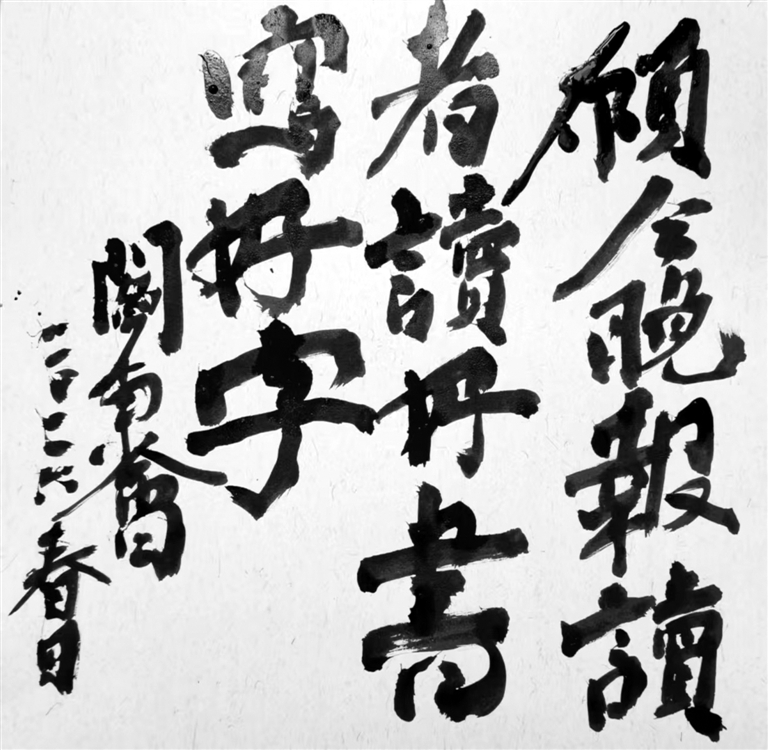 願今晚報讀
者讀好書
寫好字
閻秉會
二〇二六春日